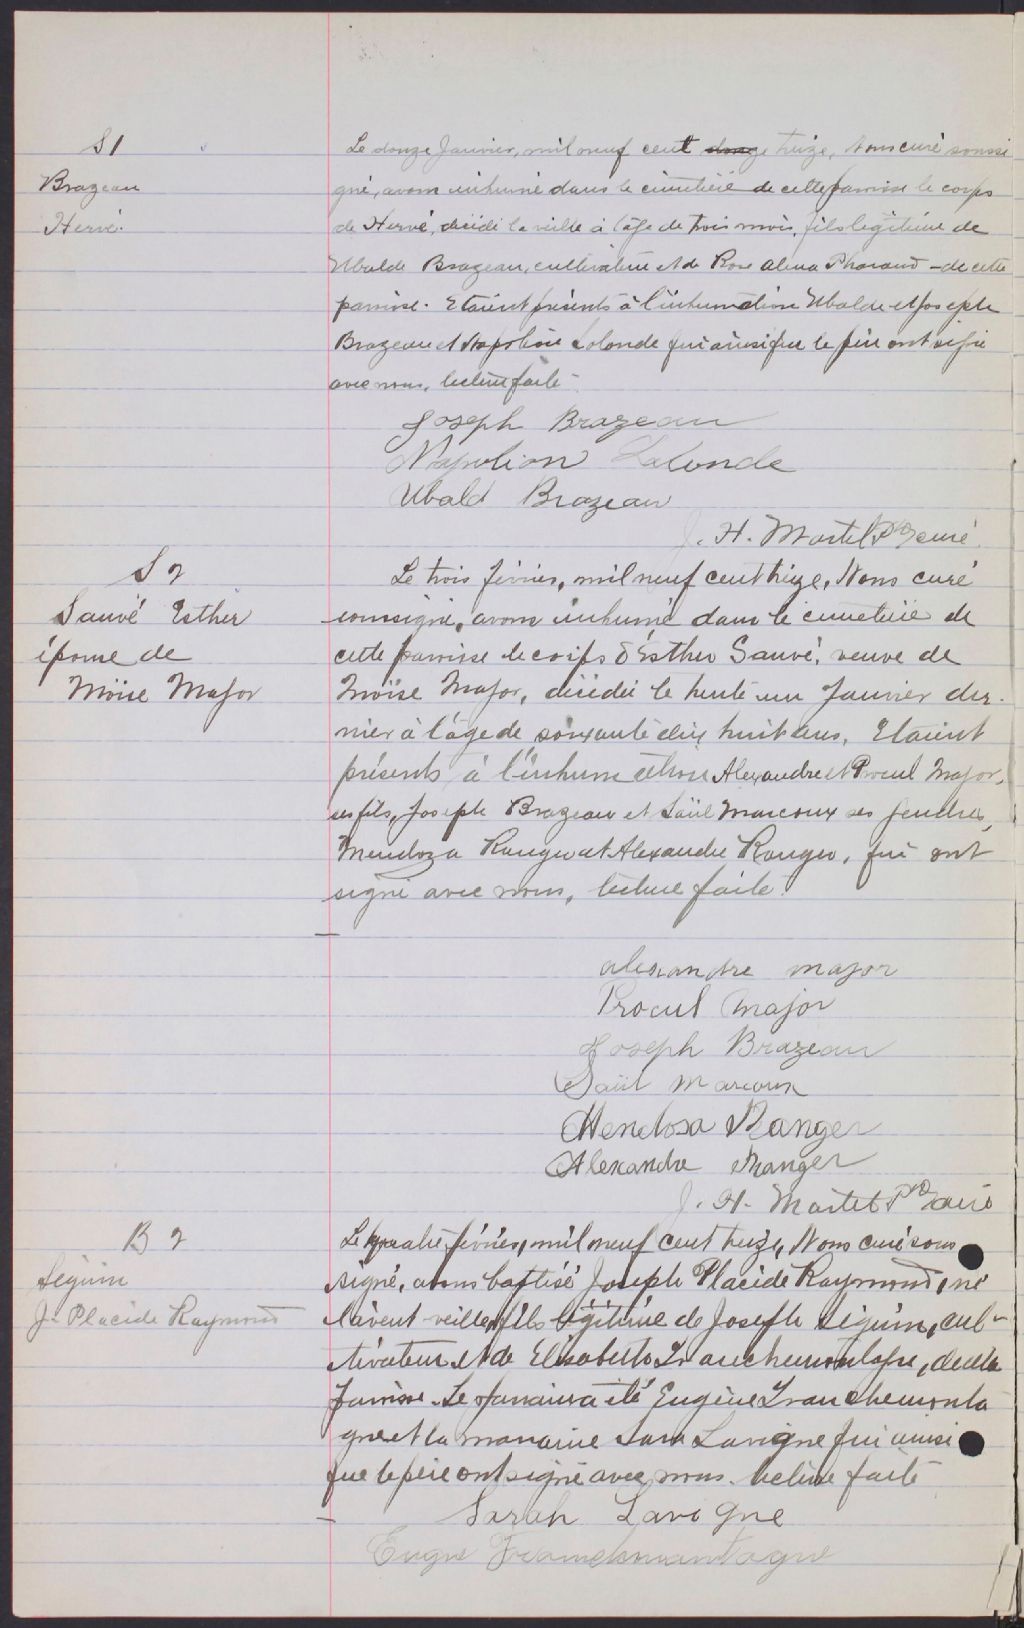 S 1
Brazeau
Hervé.
Le douze Janvier, mil neuf cent douze treize, Nous curé soussi
gné, avons inhumé dans le cimetière de cette paroisse le corps
de Hervé, décédé la veille à l'âge de trois mois, fils légitime de
Ubalde Brazeau, cultivateur et de Rose Alma Pharand - de cette
paroisse. Etaient présents à l'inhumation Ubalde et Joseph
Brazeau et Napoléon Lalonde qui ainsi que le père ont signé
avec nous, lecture faite.
Joseph Brazeau
Napoleon Lalonde
Ubald Brazeau
J. H. Martel Ptre curé
S 2
Sauvé Esther
épouse de
Moïse Major
Le trois février, mil neuf cent treize, Nous curé
soussigné, avons inhumé dans le cimetière de
cette paroisse le corps d'Esther Sauvé, veuve de
Moïse Major, décédée le trente un Janvier der-
nier à l'âge de soixante dix huit ans. Etaient
présents à l'inhumation Alexandre et Procul Major,
ses fils, Joseph Brazeau et Saül Marcoux ses gendres,
Mendoza Ranger et Alexandre Ranger, qui ont
signé avec nous, lecture faite.
alexandre major
Procul Major
Joseph Brazeau
Saül Marcoux
Mendosa Ranger
Alexandre Ranger
J. H. Martel Ptre curé
B 2
Seguin
J. Placide Raymond
Le quatre février, mil neuf cent treize, Nous curé sous
signé, avons baptisé Joseph Placide Raymond, né
l'avent veille, fils légitime de Joseph Seguin, cul-
tivateur et de Elisabeth Franchemontagne, de cette
paroisse. Le parrain a été Eugène Franchemonta
gne et la marraine Sara Lavigne qui ainsi
que le père ont signé avec nous. lecture faite
Sarah Lavigne
Eugne Franchmontagne